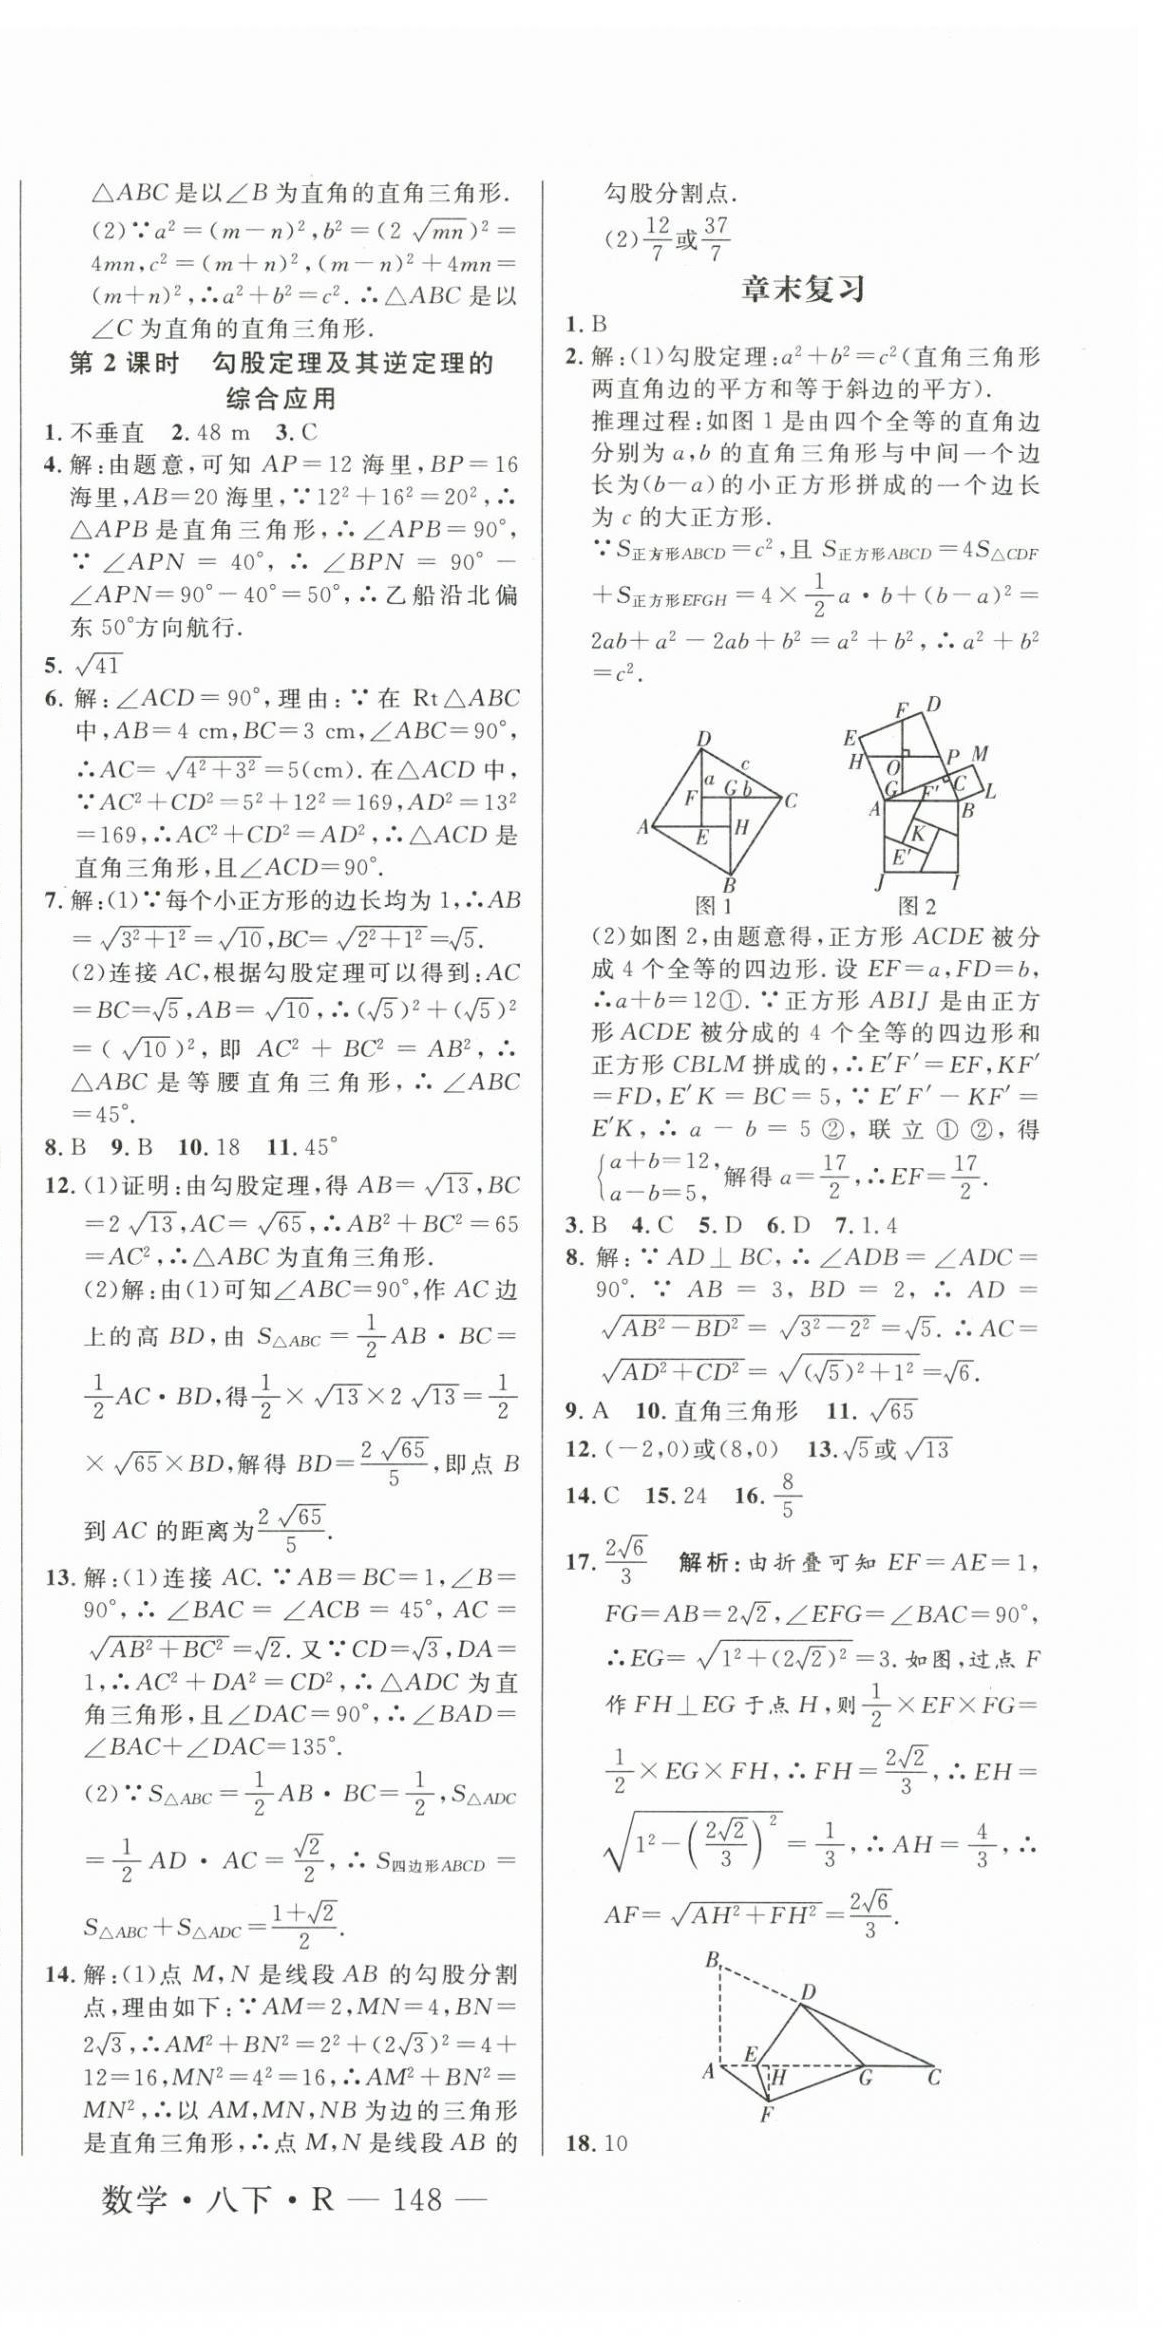 △ABC 是以∠B 为直角的直角三角形.
(2)∵a²=(m-n)²,b²=(2√mn)²=
4mn,c²=(m+n)²,(m-n)²+4mn=
(m+n)²,∴a²+b²=c².∴△ABC 是以
∠C 为直角的直角三角形.
第 2 课时 勾股定理及其逆定理的
综合应用
1. 不垂直 2. 48 m 3. C
4. 解:由题意,可知 AP=12 海里,BP=16
海里,AB=20 海里,∵12²+16²=20²,∴
△APB 是直角三角形,∴∠APB=90°,
∵∠APN=40°,∴∠BPN=90°-
∠APN=90°-40°=50°,∴乙船沿北偏
东 50°方向航行.
5. √41
6. 解:∠ACD=90°,理由:∵在 Rt△ABC
中,AB=4 cm,BC=3 cm,∠ABC=90°,
∴AC=√(4²+3²)=5(cm).在△ACD 中,
∵AC²+CD²=5²+12²=169,AD²=13²
=169,∴AC²+CD²=AD²,∴△ACD 是
直角三角形,且∠ACD=90°.
7. 解:(1)∵每个小正方形的边长均为 1,∴AB
=√(3²+1²)=√10,BC=√(2²+1²)=√5.
(2)连接 AC,根据勾股定理可以得到:AC
=BC=√5,AB=√10,∴(√5)²+(√5)²
=(√10)²,即 AC²+BC²=AB²,∴
△ABC 是等腰直角三角形,∴∠ABC
=45°.
8. B 9. B 10. 18 11. 45°
12. (1)证明:由勾股定理,得 AB=√13,BC
=2√13,AC=√65,∴AB²+BC²=65
=AC²,∴△ABC 为直角三角形.
(2)解:由(1)可知∠ABC=90°,作 AC 边
上的高 BD,由 S△ABC=1/2 AB·BC=
1/2 AC·BD,得 1/2×√13×2√13=1/2
×√65×BD,解得 BD=2√65/5,即点 B
到 AC 的距离为 2√65/5.
13. 解:(1)连接 AC.∵AB=BC=1,∠B=
90°,∴∠BAC=∠ACB=45°,AC=
√(AB²+BC²)=√2.又∵CD=√3,DA=
1,∴AC²+DA²=CD²,∴△ADC 为直
角三角形,且∠DAC=90°,∴∠BAD=
∠BAC+∠DAC=135°.
(2)∵S△ABC=1/2 AB·BC=1/2,S△ADC
=1/2 AD·AC=√2/2,∴S四边形ABCD=
S△ABC+S△ADC=(1+√2)/2.
14. 解:(1)点 M,N 是线段 AB 的勾股分割
点,理由如下:∵AM=2,MN=4,BN=
2√3,∴AM²+BN²=2²+(2√3)²=4+
12=16,MN²=4²=16,∴AM²+BN²=
MN²,∴以 AM,MN,NB 为边的三角形
是直角三角形,∴点 M,N 是线段 AB 的
勾股分割点.
(2)12/7或37/7
章末复习
1. B
2. 解:(1)勾股定理:a²+b²=c²(直角三角形
两直角边的平方和等于斜边的平方).
推理过程:如图 1 是由四个全等的直角边
分别为 a,b 的直角三角形与中间一个边
长为(b-a)的小正方形拼成的一个边长
为 c 的大正方形.
∵S正方形ABCD=c²,且 S正方形ABCD=4S△CDF
+S正方形EFGH=4×1/2 a·b+(b-a)²=
2ab+a²-2ab+b²=a²+b²,∴a²+b²
=c².
D c a F G b C A E H B
图 1
F D E H O P M G F' C L A B K E' J I
图 2
(2)如图 2,由题意得,正方形 ACDE 被分
成 4 个全等的四边形.设 EF=a,FD=b,
∴a+b=12①.∵正方形 ABIJ 是由正方
形 ACDE 被分成的 4 个全等的四边形和
正方形 CBLM 拼成的,∴E'F'=EF,KF'
=FD,E'K=BC=5,∵E'F'-KF'=
E'K,∴a-b=5②,联立①②,得
{a+b=12, a-b=5, 解得 a=17/2,∴EF=17/2.
3. B 4. C 5. D 6. D 7. 1.4
8. 解:∵AD⊥BC,∴∠ADB=∠ADC=
90°.∵AB=3,BD=2,∴AD=
√(AB²-BD²)=√(3²-2²)=√5.∴AC=
√(AD²+CD²)=√((√5)²+1²)=√6.
9. A 10. 直角三角形 11. √65
12. (-2,0)或(8,0) 13. √5或√13
14. C 15. 24 16. 8/5
17. 2√6/3 解析:由折叠可知 EF=AE=1,
FG=AB=2√2,∠EFG=∠BAC=90°,
∴EG=√(1²+(2√2)²)=3.如图,过点 F
作 FH⊥EG 于点 H,则 1/2×EF×FG=
1/2×EG×FH,∴FH=2√2/3,∴EH=
√(1²-(2√2/3)²)=1/3,∴AH=4/3,∴
AF=√(AH²+FH²)=2√6/3.
B D E A H G C F
18. 10
数学·八下·R — 148 —